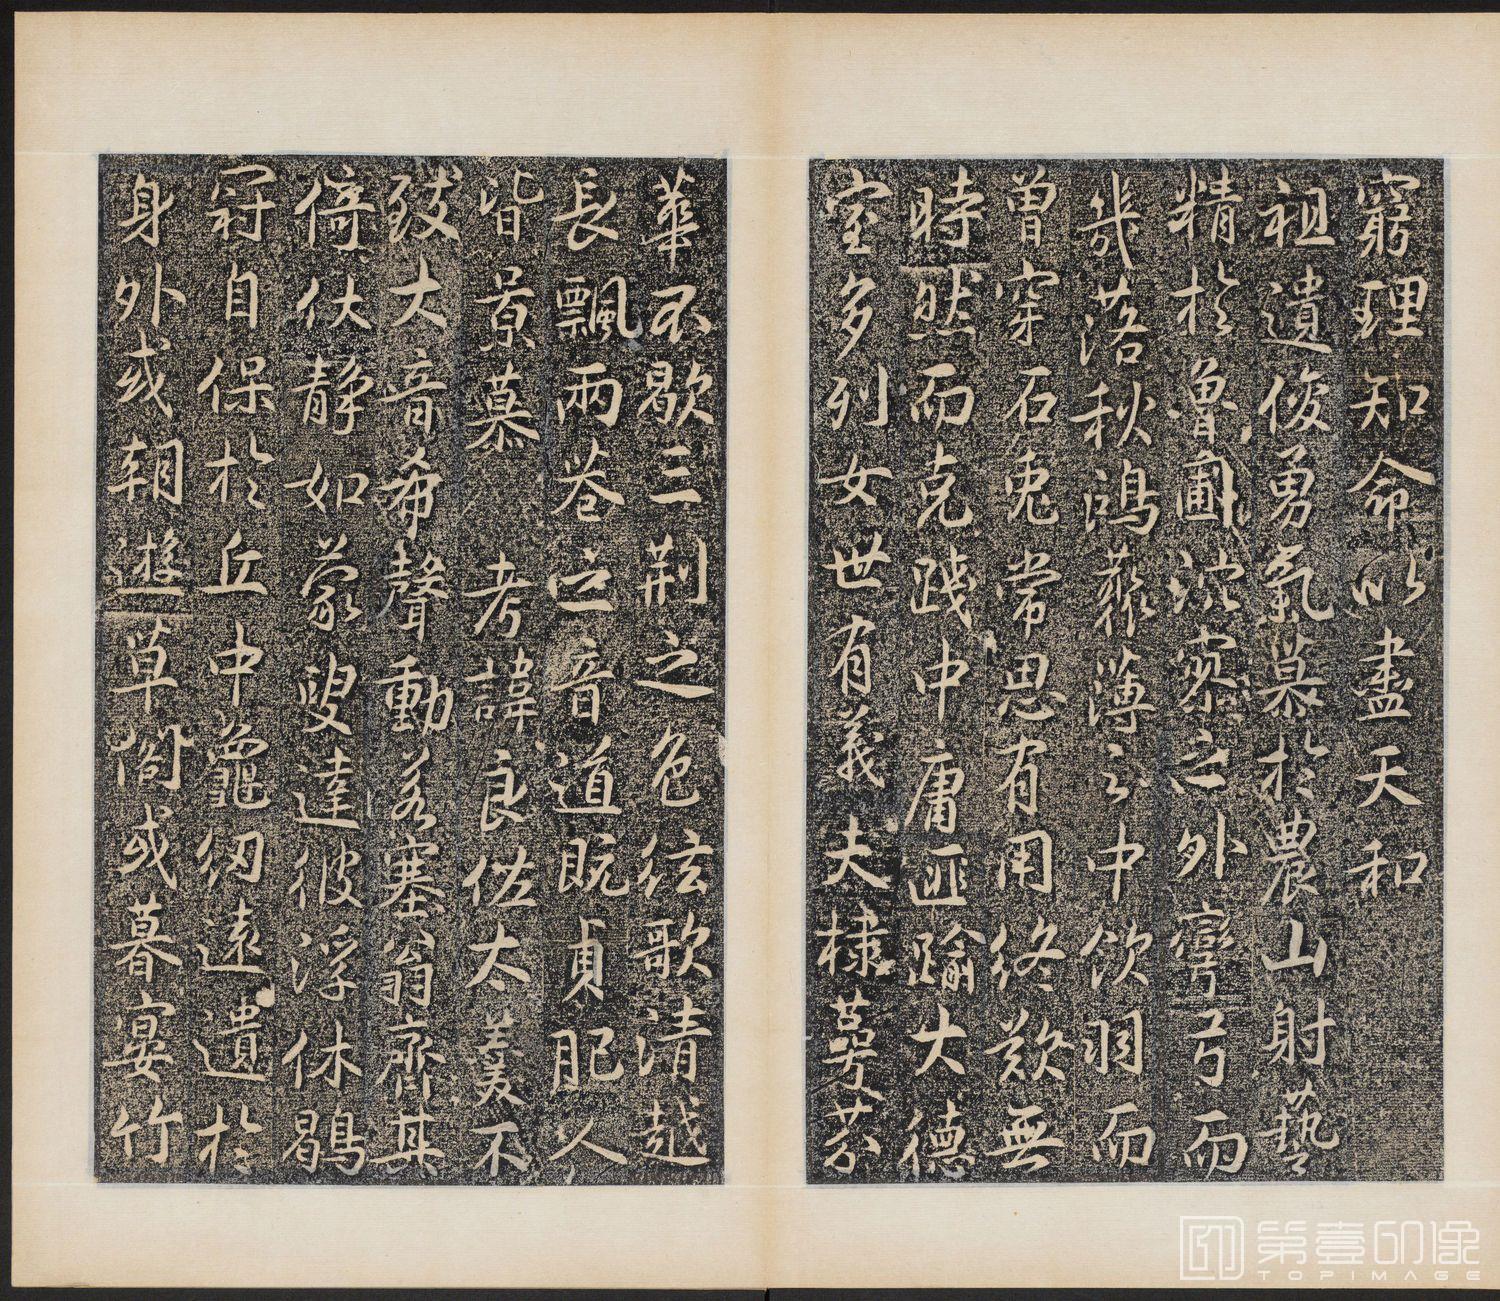 窮理知命以盡天和
祖遺俊勇氣慕於農山射藝
精於魯圃沈寥之外彎弓而
幾落秋鴻叢薄之中飲羽而
曾穿石兎常思有用終歎無
時然而克踐中庸匪踰大德
室多列女世有義夫棣萼芬
華不歇三荆之色弦歌清越
長飄兩巷之音道既貞肥人
皆景慕 考諱良佐大羹不
致大音希聲動若塞翁齊其
倚伏靜如蒙叟達彼浮休鶡
冠自保於丘中龜紉遠遺於
身外或朝遊草閣或暮宴竹
第壹印像
TOPIMAGE